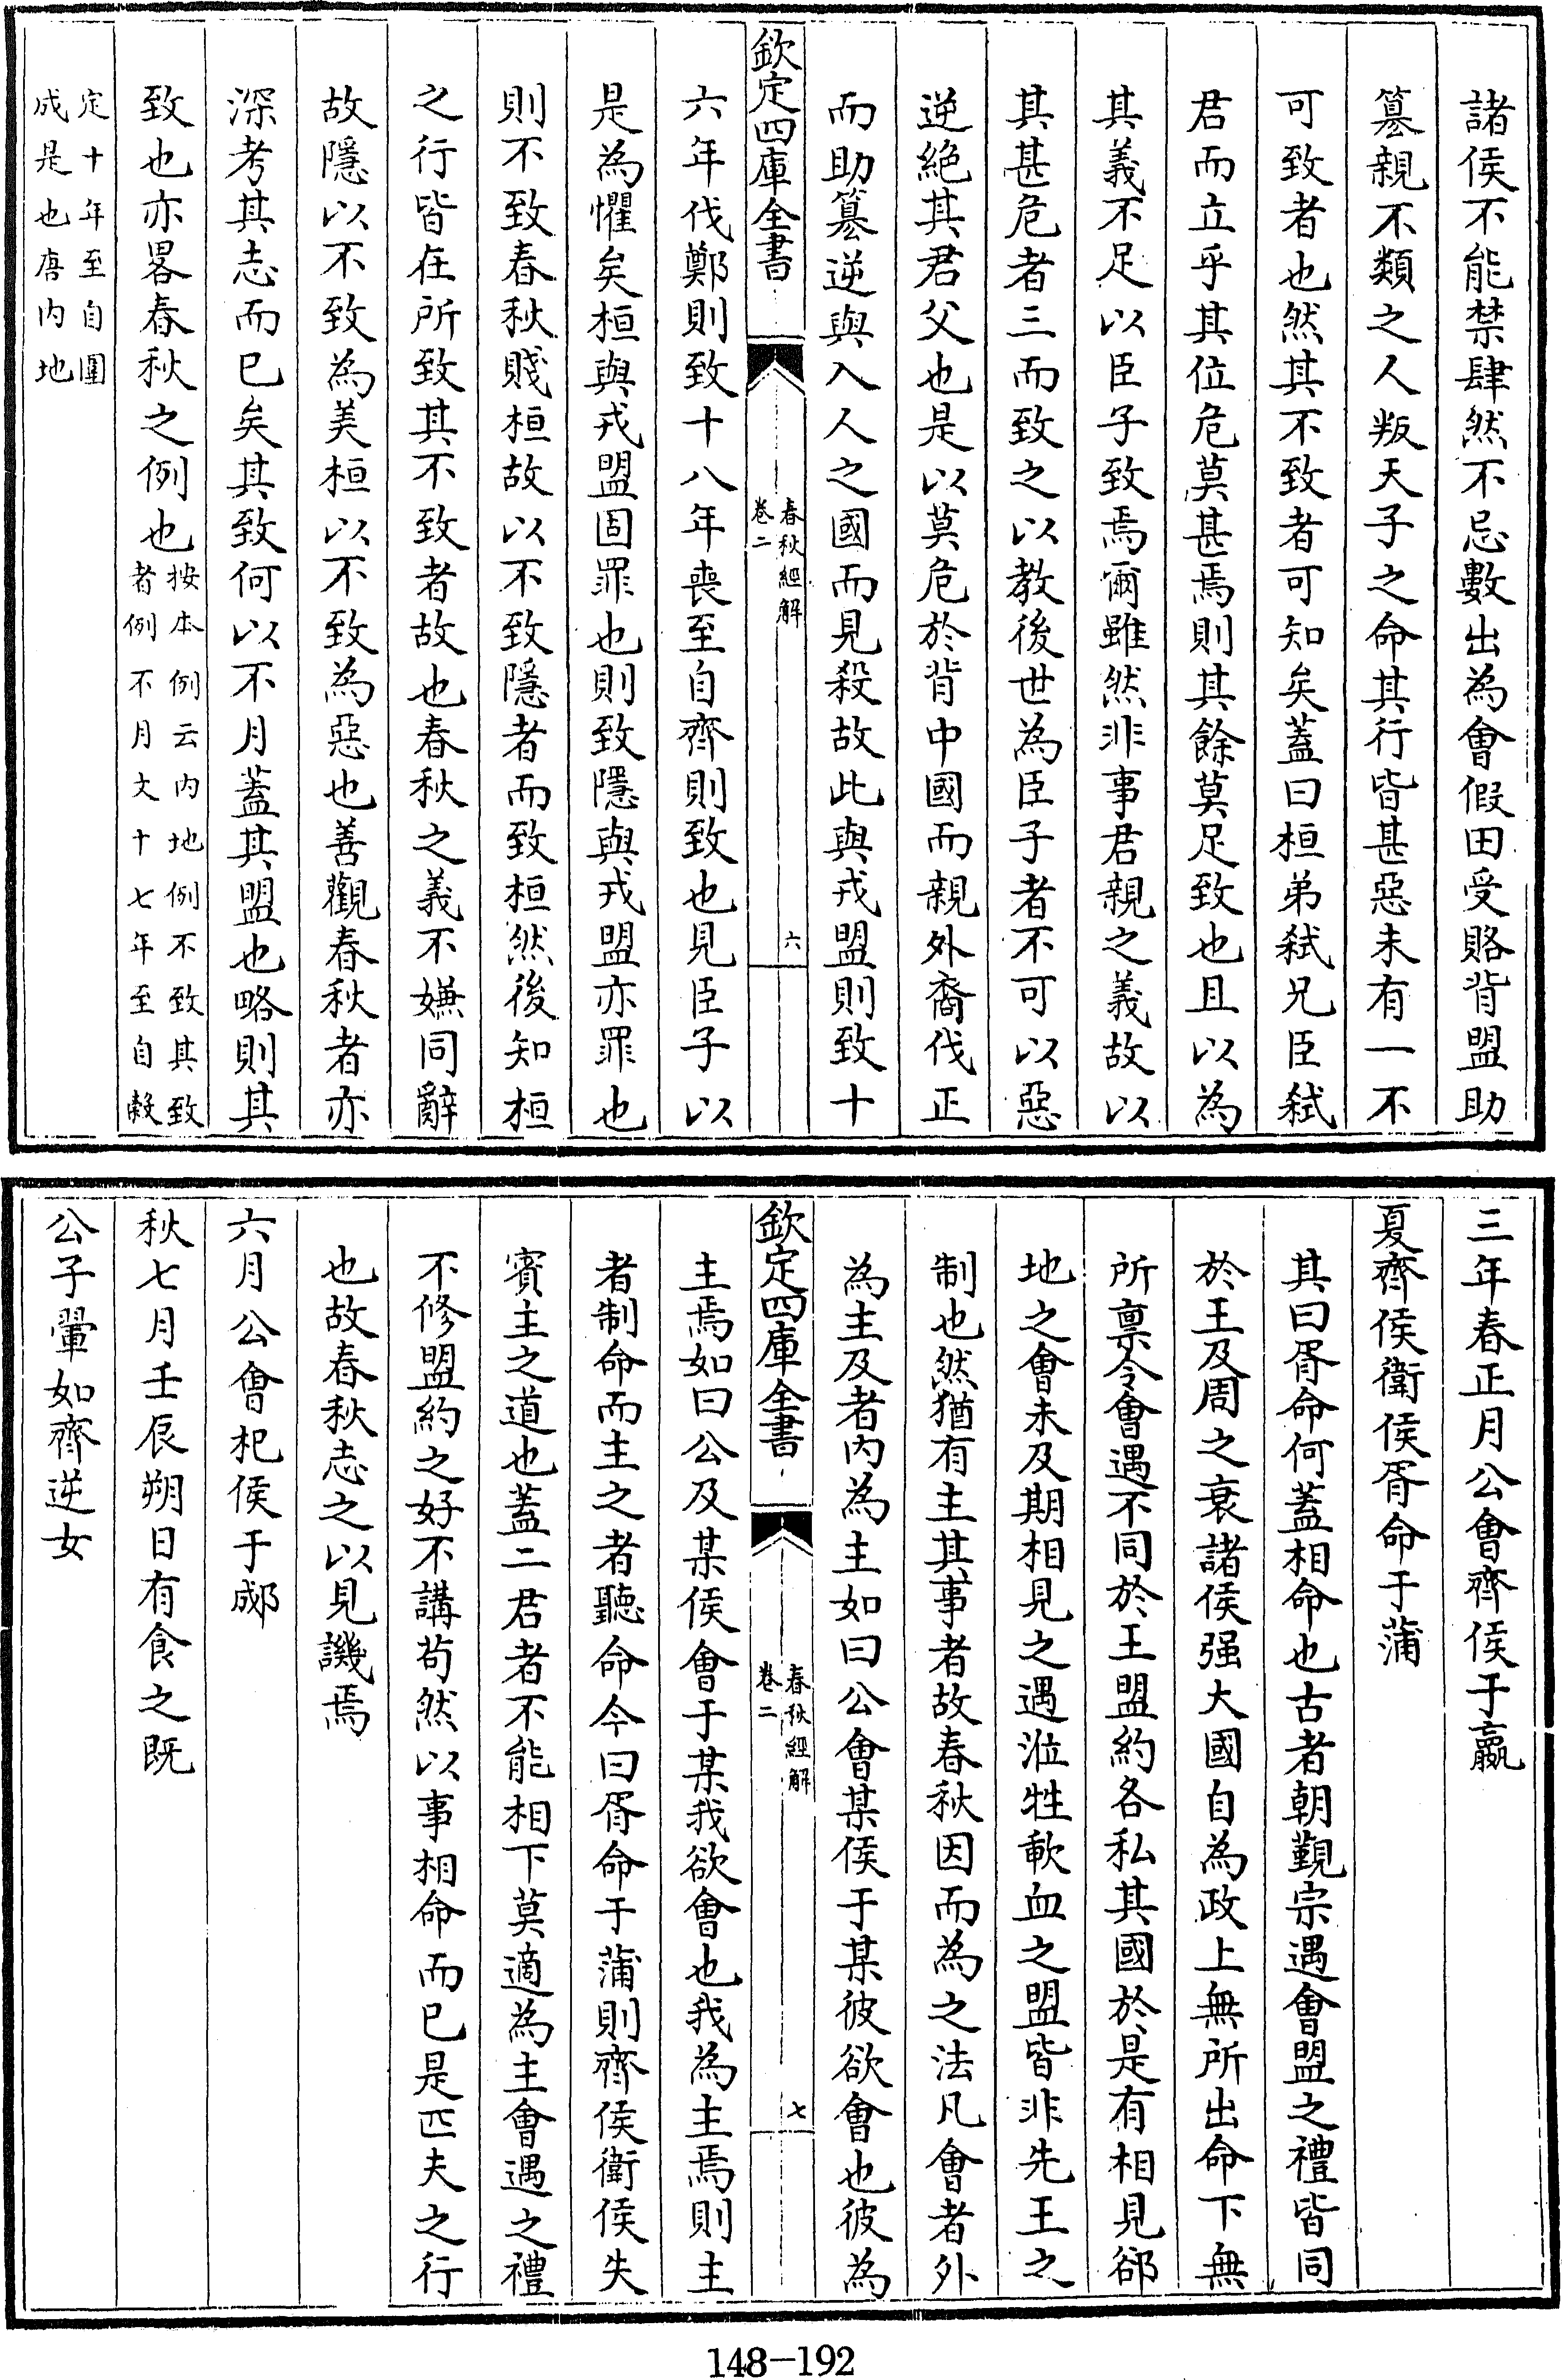 諸侯不能禁肆然不忌數出為會假田受賂背盟助
簒親不類之人叛天子之命其行皆甚惡未有一不
可致者也然其不致者可知矣蓋曰桓弟弑兄臣弑
君而立乎其位危莫甚焉則其餘莫足致也且以為
其義不足以臣子致焉爾雖然非事君親之義故以
其甚危者三而致之以教後世為臣子者不可以惡
逆絕其君父也是以莫危於背中國而親外裔伐正
而助簒逆與入人之國而見殺故此與戎盟則致十
欽定四庫全書
春秋經解
卷二
六
六年伐鄭則致十八年喪至自齊則致也見臣子以
是為懼矣桓與戎盟固罪也則致隱與戎盟亦罪也
則不致春秋賤桓故以不致隱者而致桓然後知桓
之行皆在所致其不致者故也春秋之義不嫌同辭
故隱以不致為美桓以不致為惡也善觀春秋者亦
深考其志而已矣其致何以不月蓋其盟也略則其
致也亦畧春秋之例也按本例云内地例不致其致
者例不月文十七年至自穀
定十年至自圍
成是也唐内地
三年春正月公會齊侯于嬴
夏齊侯衛侯胥命于蒲
其曰胥命何蓋相命也古者朝覲宗遇會盟之禮皆同
於王及周之衰諸侯强大國自為政上無所出命下無
所禀令會遇不同於王盟約各私其國於是有相見郤
地之會未及期相見之遇涖牲歃血之盟皆非先王之
制也然猶有主其事者故春秋因而為之法凡會者外
為主及者内為主如曰公會某侯于某彼欲會也彼為
欽定四庫全書
春秋經解
卷二
七
主焉如曰公及某侯會于某我欲會也我為主焉則主
者制命而主之者聽命今曰胥命于蒲則齊侯衛侯失
賓主之道也蓋二君者不能相下莫適為主會遇之禮
不修盟約之好不講苟然以事相命而已是匹夫之行
也故春秋志之以見譏焉
六月公會杞侯于郕
秋七月壬辰朔日有食之既
公子翬如齊逆女
148-192